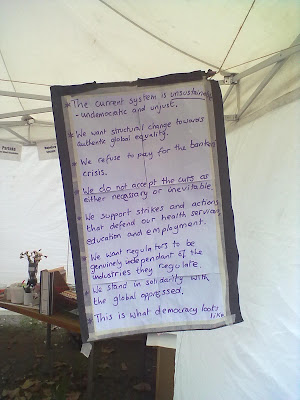 * The current system is unsustainable
- undemocratic and unjust.
* We want structural change towards
authentic global equality.
* We refuse to pay for the bankers
crisis.
* We do not accept the cuts as
either necessary or inevitable.
* We support strikes and actions
that defend our health services,
education and employment.
* We want regulators to be
genuinely independant of the
industries they regulate.
* We stand in solidarity with
the global oppressed.
* This is what democracy looks
like.